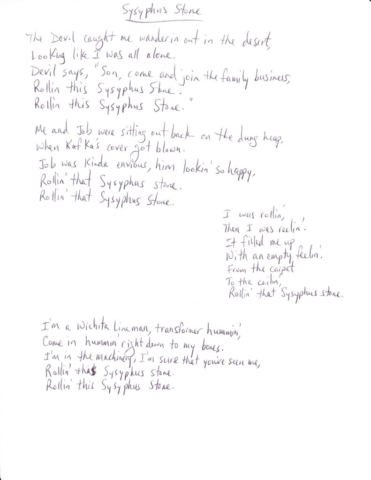 Sysyphus Stone
The Devil caught me wanderin out in the desert,
Looking like I was all alone.
Devil says, "Son, come and join the family business,
Rollin this Sysyphus Stone.
Rollin this Sysyphus Stone."
Me and Job were sitting out back on the dung heap,
When Kafka's cover got blown.
Job was Kinda envious, him lookin' so happy,
Rollin' that Sysyphus stone.
Rollin' that Sysyphus Stone.
I was rollin',
Then I was reelin'.
It filled me up
With an empty feelin'.
From the carpet
To the ceilin',
Rollin' that Sysyphus stone.
I'm a Wichita Lineman, transformer hummin',
Come in hummin' right down to my bones.
I'm in the machinery, I'm sure that you've seen me,
Rollin' this Sysyphus stone.
Rollin' this Sysyphus Stone.